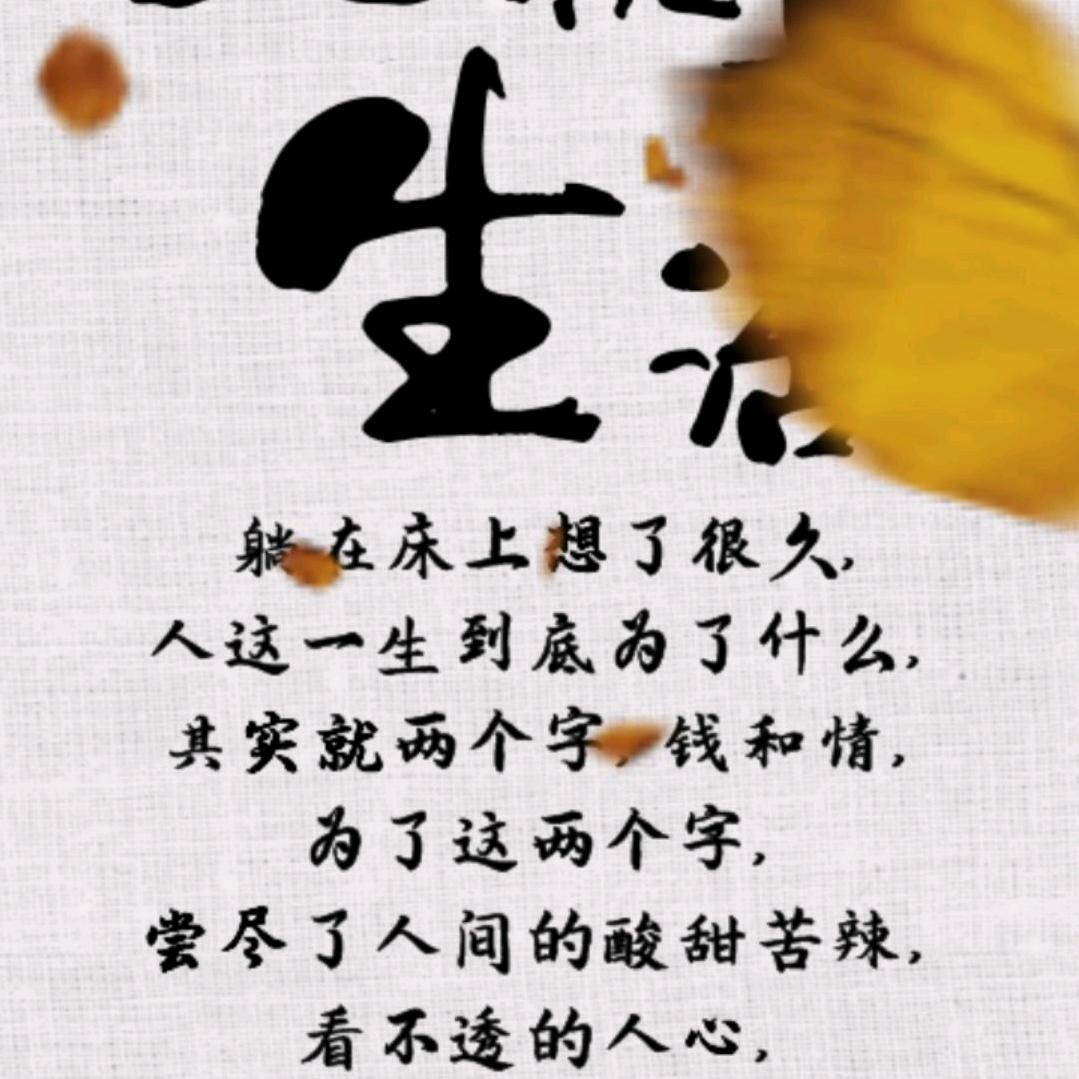 生活
躺在床上想了很久,
人这一生到底为了什么,
其实就两个字,钱和情,
为了这两个字,
尝尽了人间的酸甜苦辣,
看不透的人心,